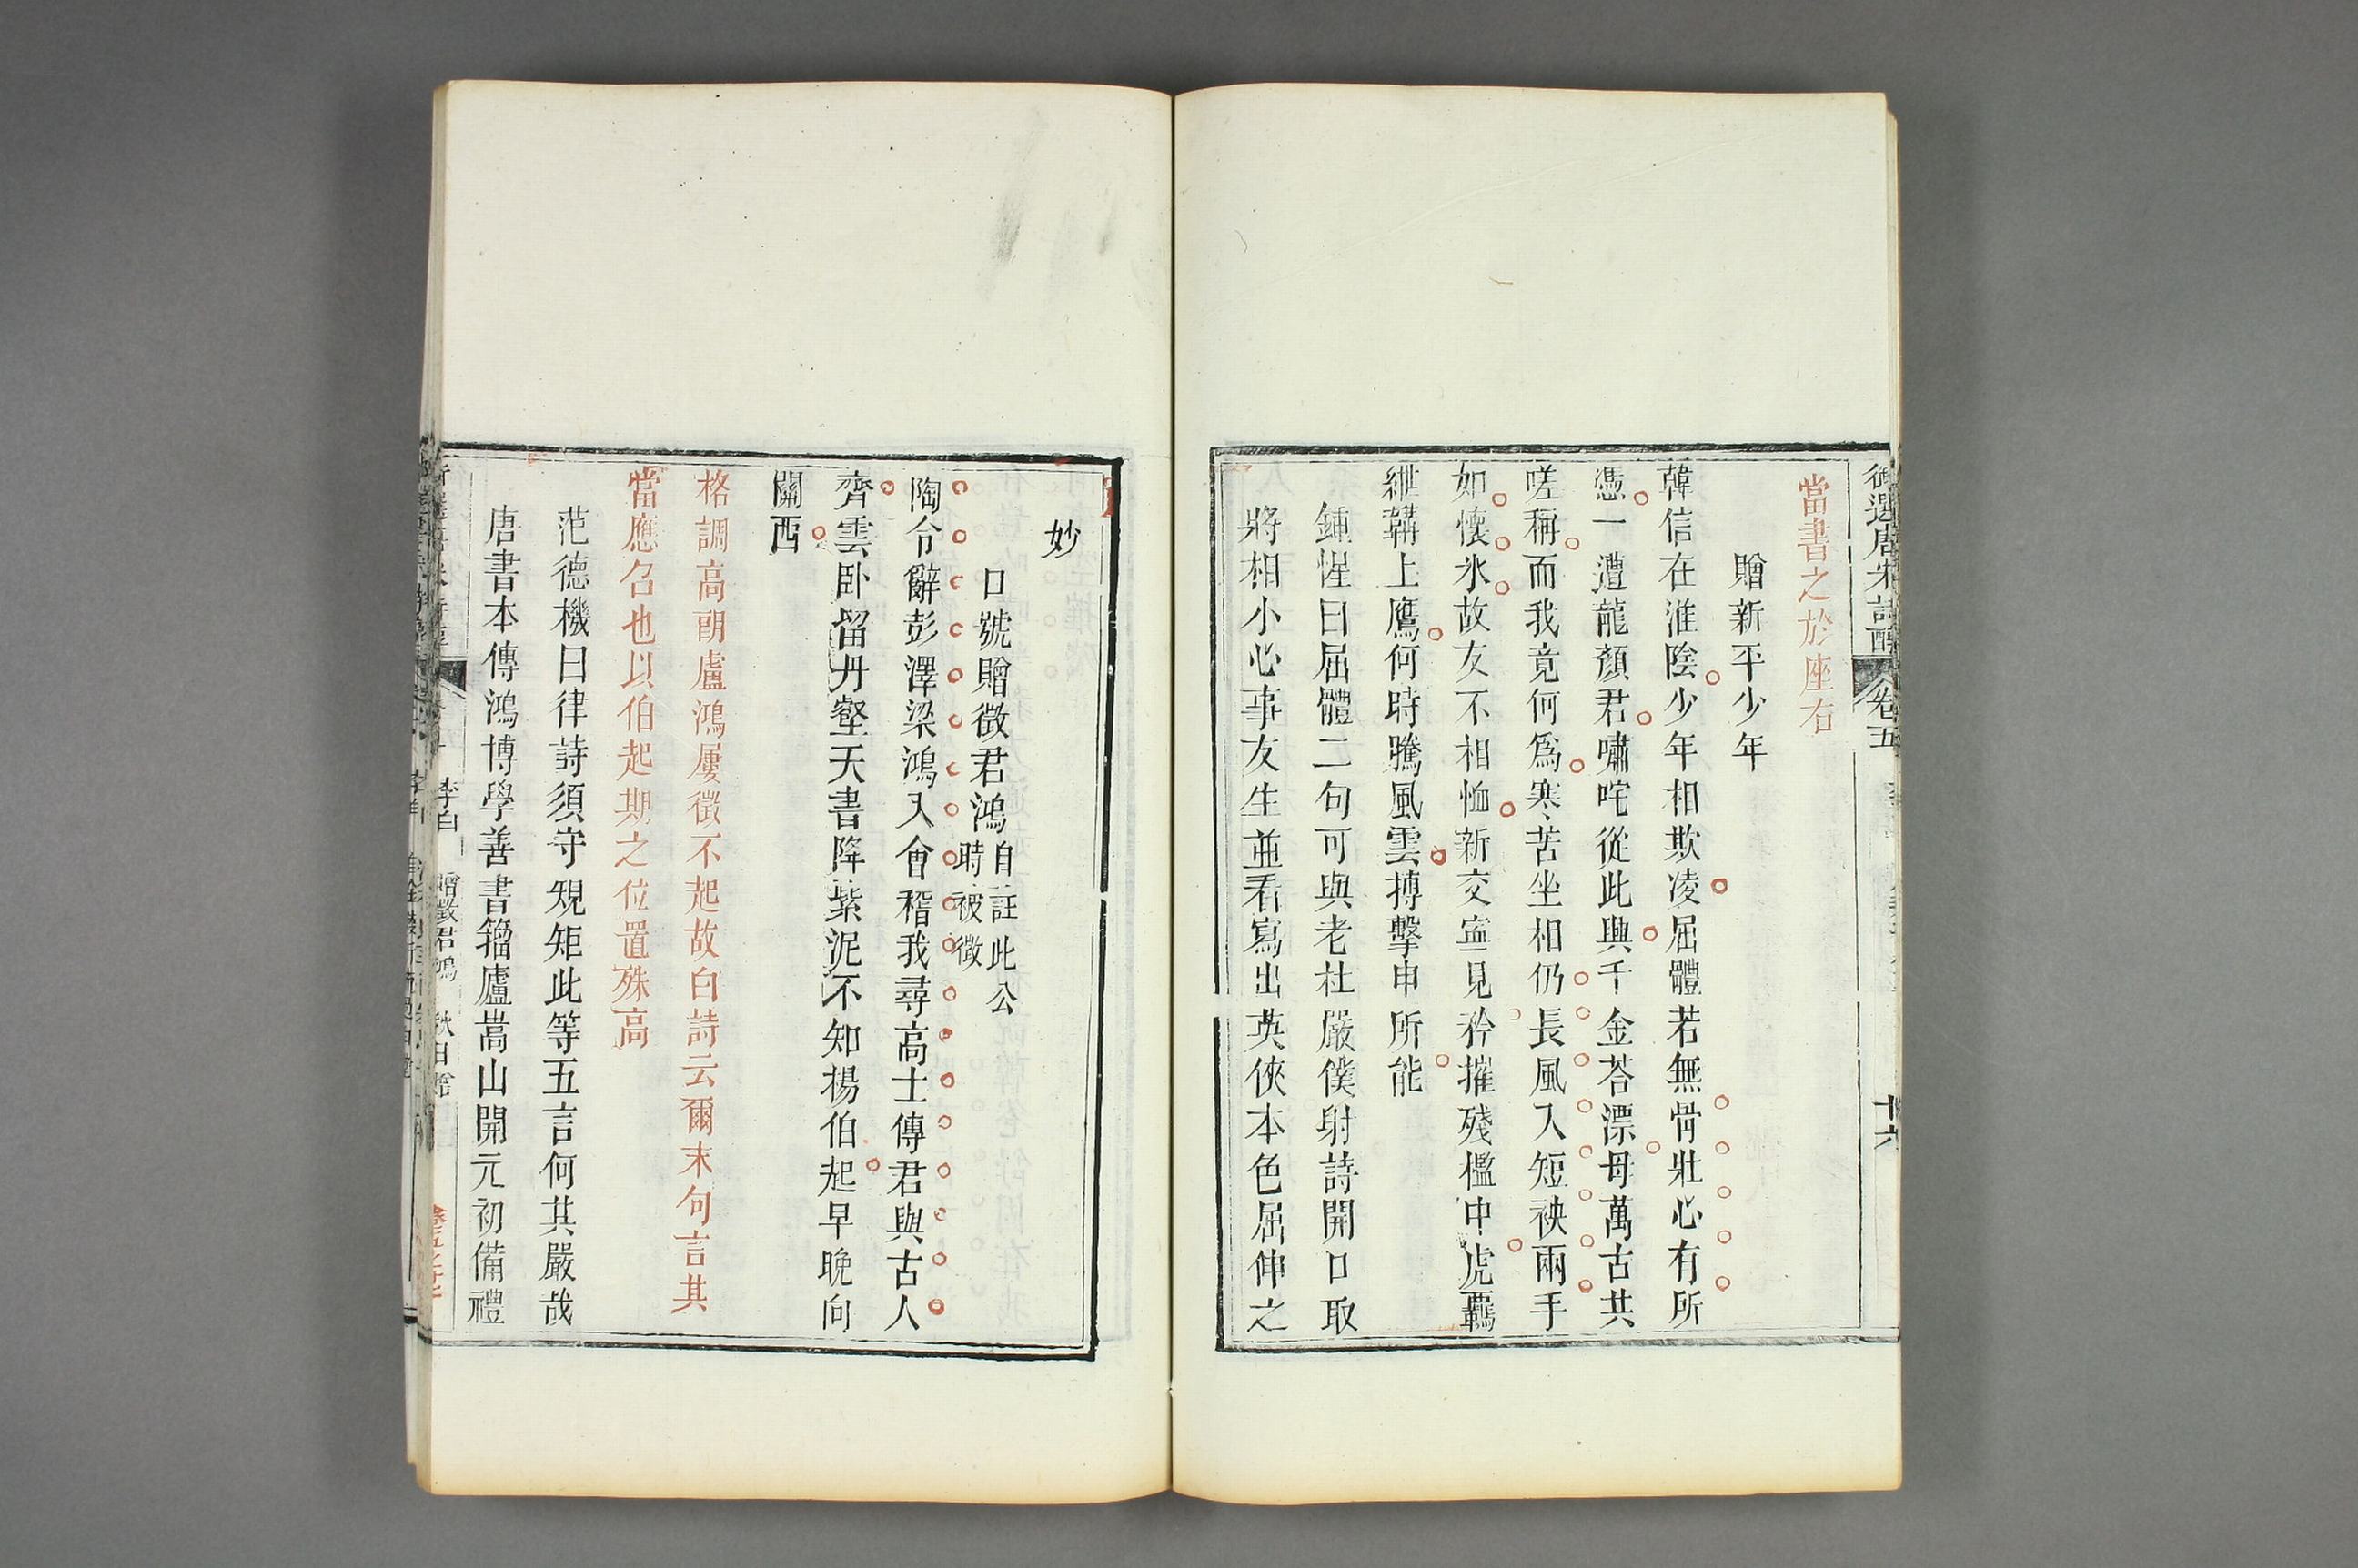 御選唐宋詩醇 卷五 十六
當書之於座右
贈新平少年
韓信在淮陰少年相欺凌屈體若無骨壯心有所
憑一遭龍顏君嘯咤從此興千金荅漂母萬古共
嗟稱而我竟何爲寒苦坐相仍長風入短袂兩手
如懷氷故友不相恤新交寍見矜摧殘檻中虎羈
紲韝上鷹何時騰風雲搏擊申所能
鍾惺曰屈體二句可與老杜嚴僕射詩開口取
將相小心事友生並看寫出英俠本色屈伸之
妙
口號贈徵君鴻
自註此公
時被徵
陶令辭彭澤梁鴻入會稽我尋高士傳君與古人
齊雲卧留丹壑天書降紫泥不知揚伯起早晚向
關西
格調高朗盧鴻屢徵不起故白詩云爾末句言其
當應召也以伯起期之位置殊高
范德機曰律詩須守規矩此等五言何其嚴哉
唐書本傳鴻博學善書籀廬嵩山開元初備禮
李白 贈徵君鴻